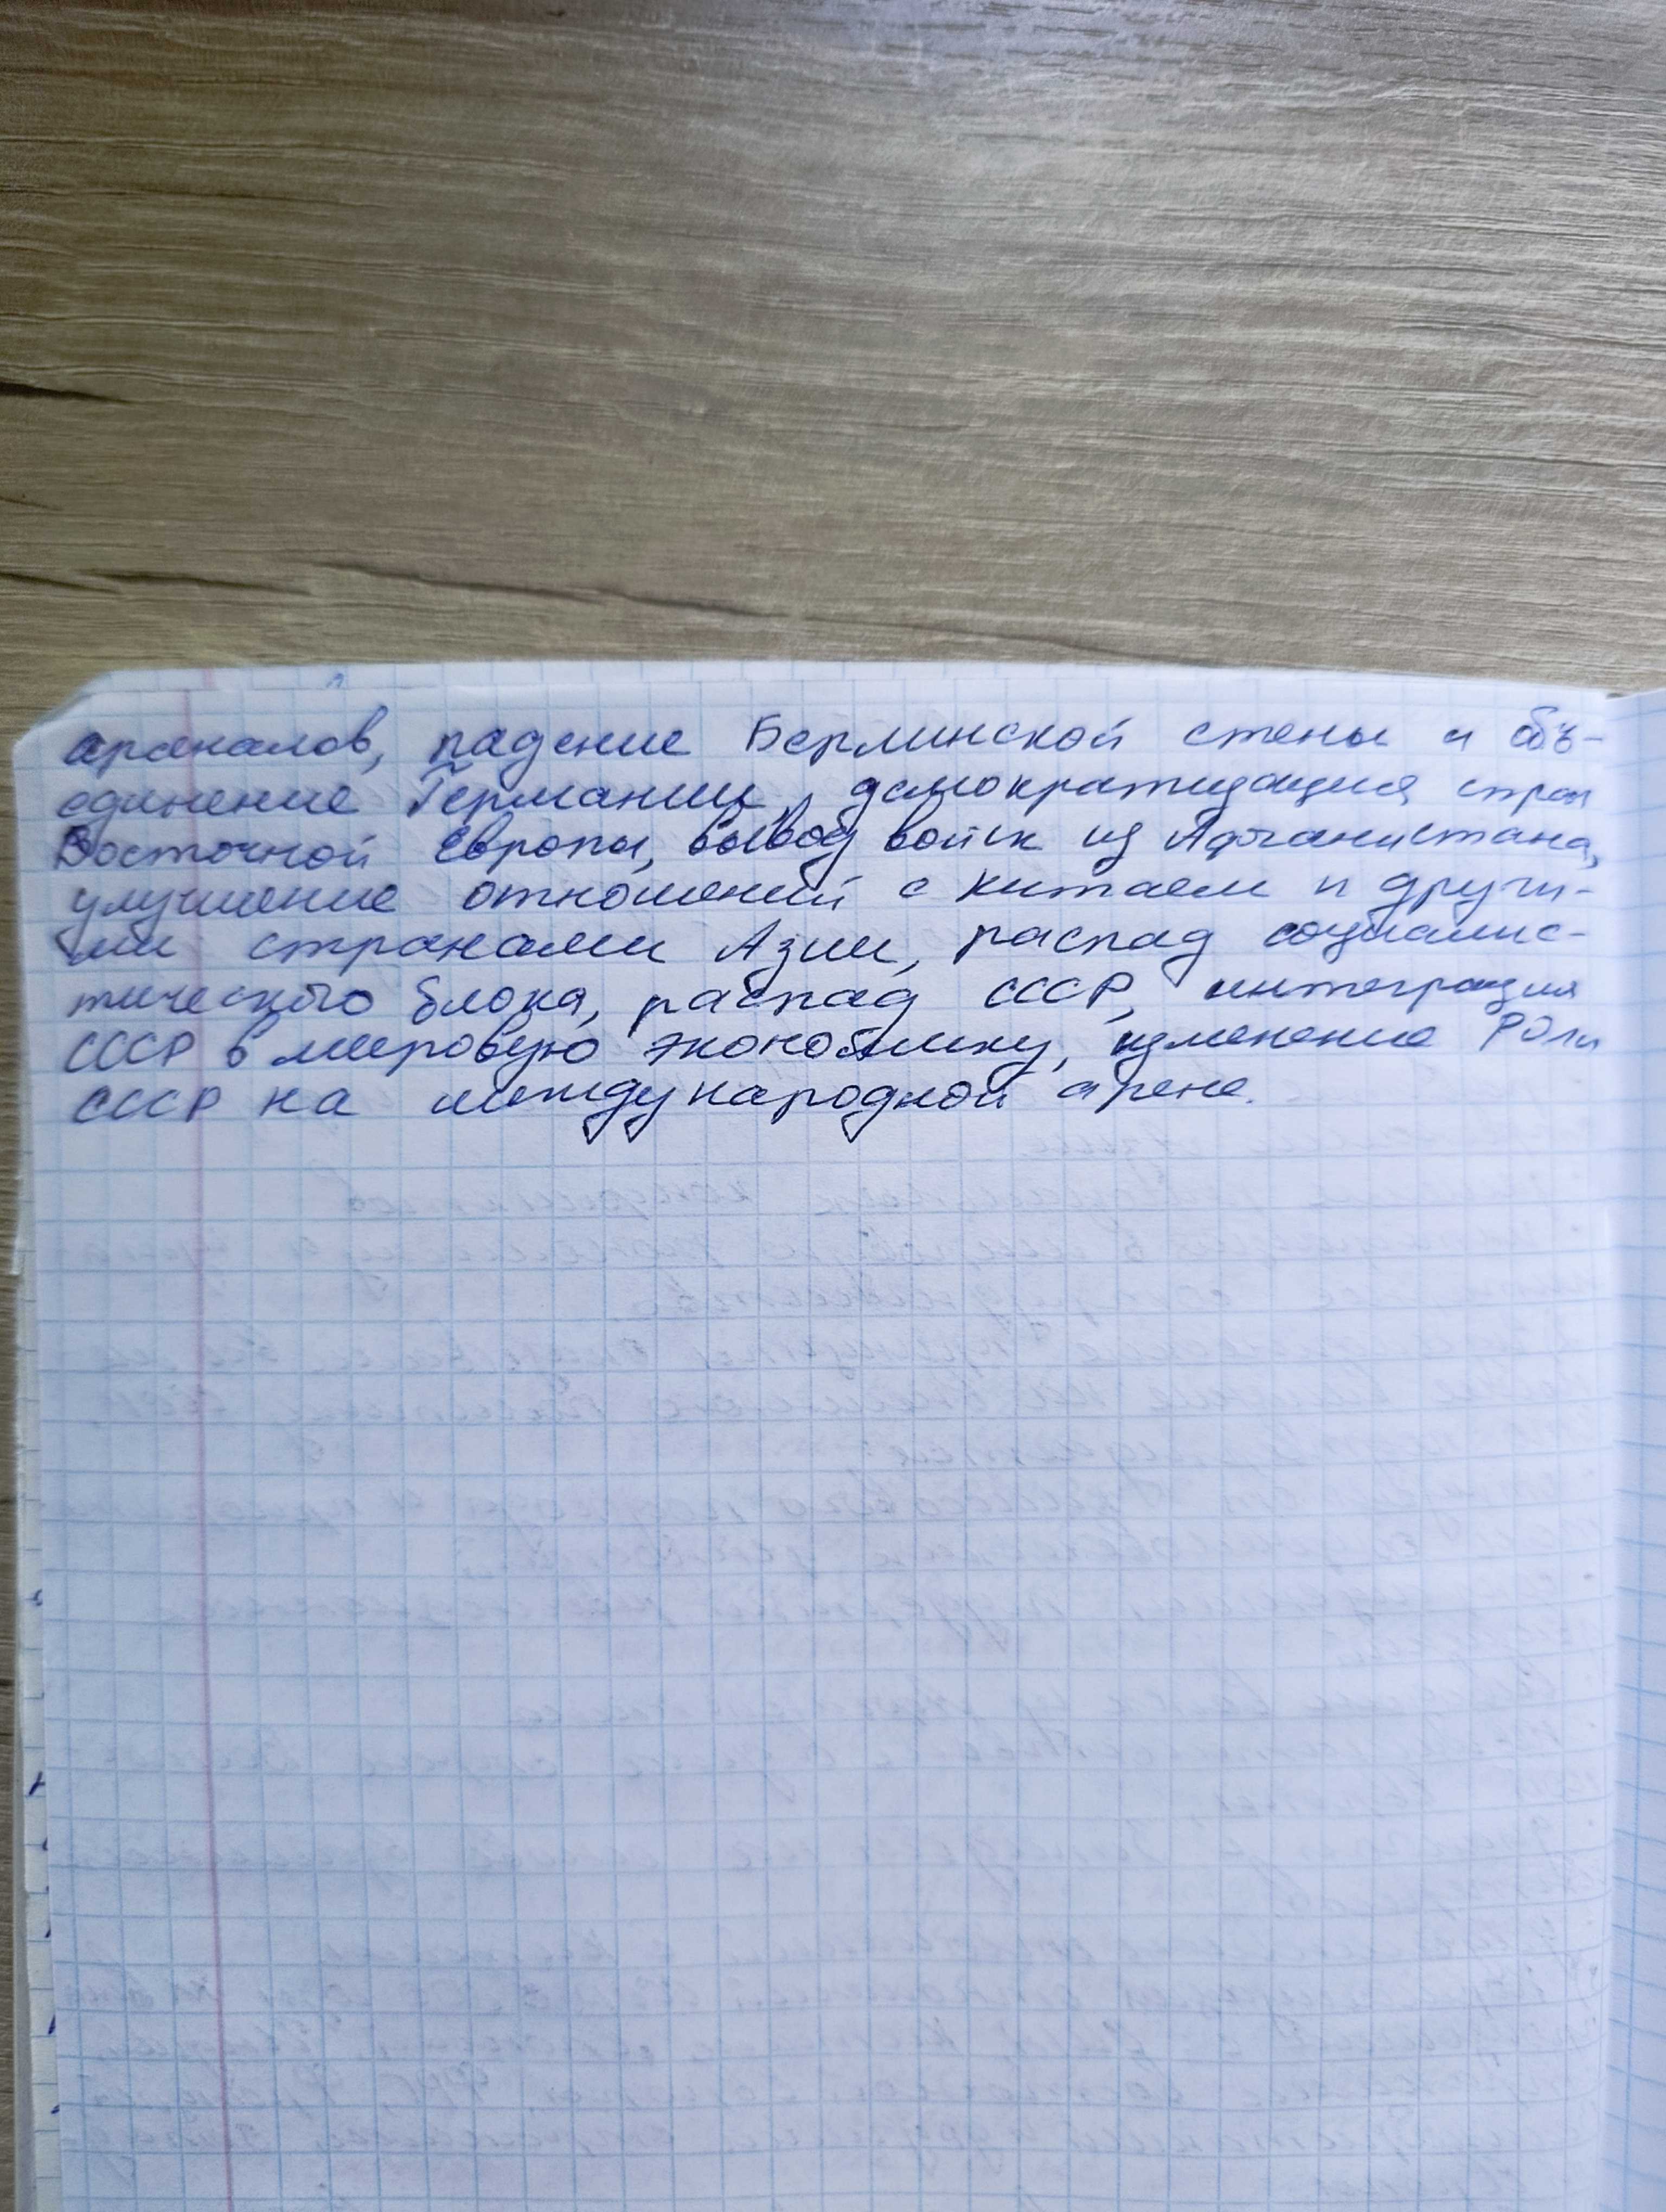 арсеналов, падение Берлинской стены и объ-
единение Германии, демократизация стран
Восточной Европы, вывод войск из Афганистана,
улучшение отношений с Китаем и други-
ми странами Азии, распад социалис-
тического блока, распад СССР, интеграция
СССР в мировую экономику, изменение роли
СССР на международной арене.